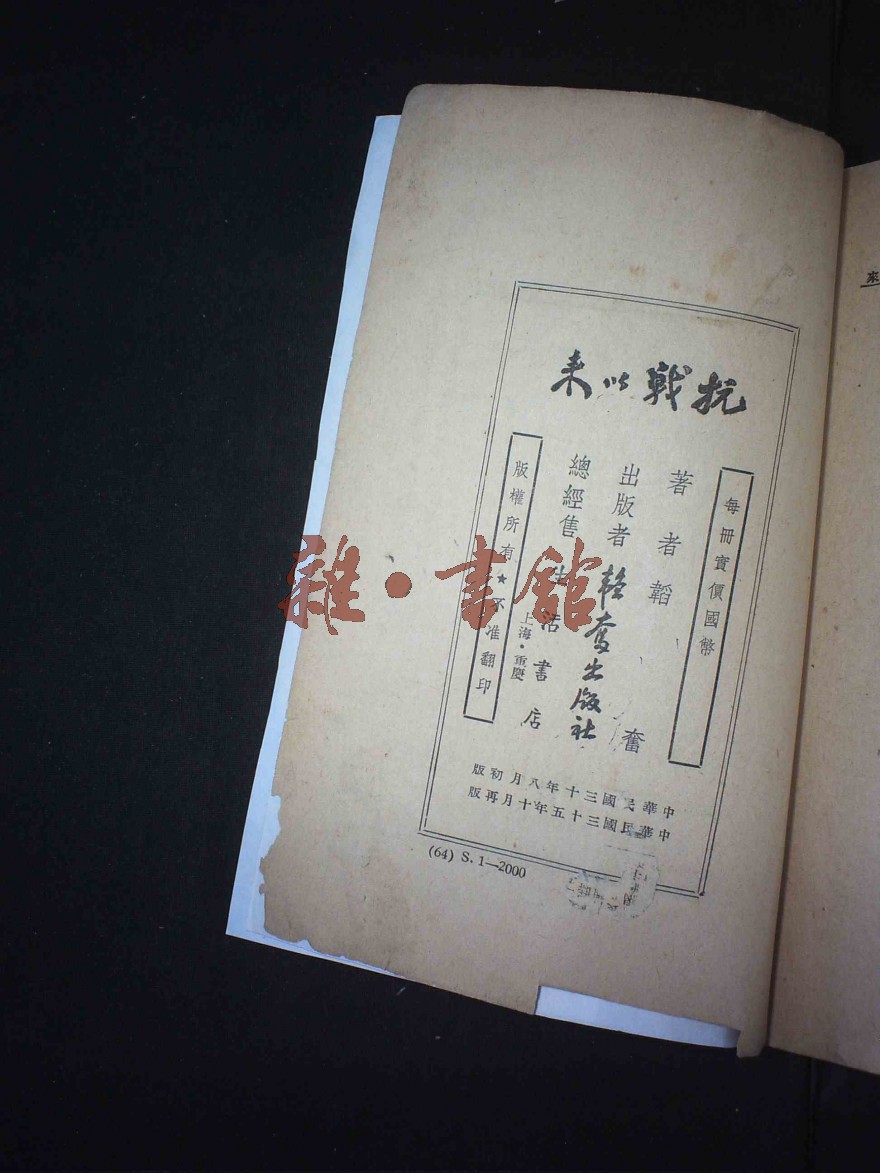 抗戰以来
每冊實價國幣
著者韜奮
出版者韜奮出版社
總經售生活書店
上海·重慶
版權所有★不准翻印
中華民國三十年八月初版
中華民國三十五年十月再版
(64) S. 1—2000
雜·書館
来